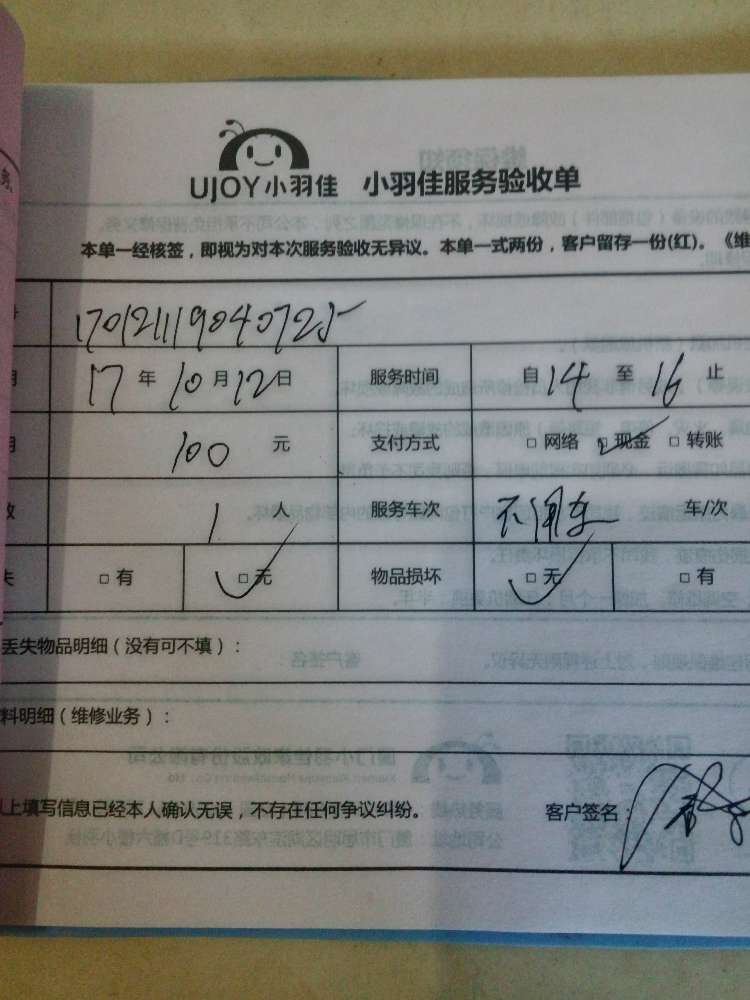 UJOY小羽佳 小羽佳服务验收单
本单一经核签，即视为对本次服务验收无异议。本单一式两份，客户留存一份(红)。《维
17 年 10 月 12 日 服务时间 自 14 至 16 止
100 元 支付方式 □ 网络 □ 现金 □ 转账
1 人 服务车次 车/次
□ 有 □ 无 物品损坏 □ 无 □ 有
丢失物品明细（没有可不填）：
料明细（维修业务）：
以上填写信息已经本人确认无误，不存在任何争议纠纷。 客户签名：